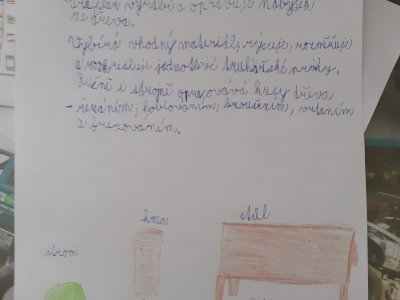 Truhlář vyrábí a opravuje nábytek
ze dřeva.
Vybírá vhodný materiál, rýsuje, rozměřuje
a rozkresluje jednotlivé truhlářské prvky.
Ručně i strojně opracovává kusy dřeva
- řezáním, hoblováním, broušením, vrtáním
a frézováním.
kmen
stůl
strom